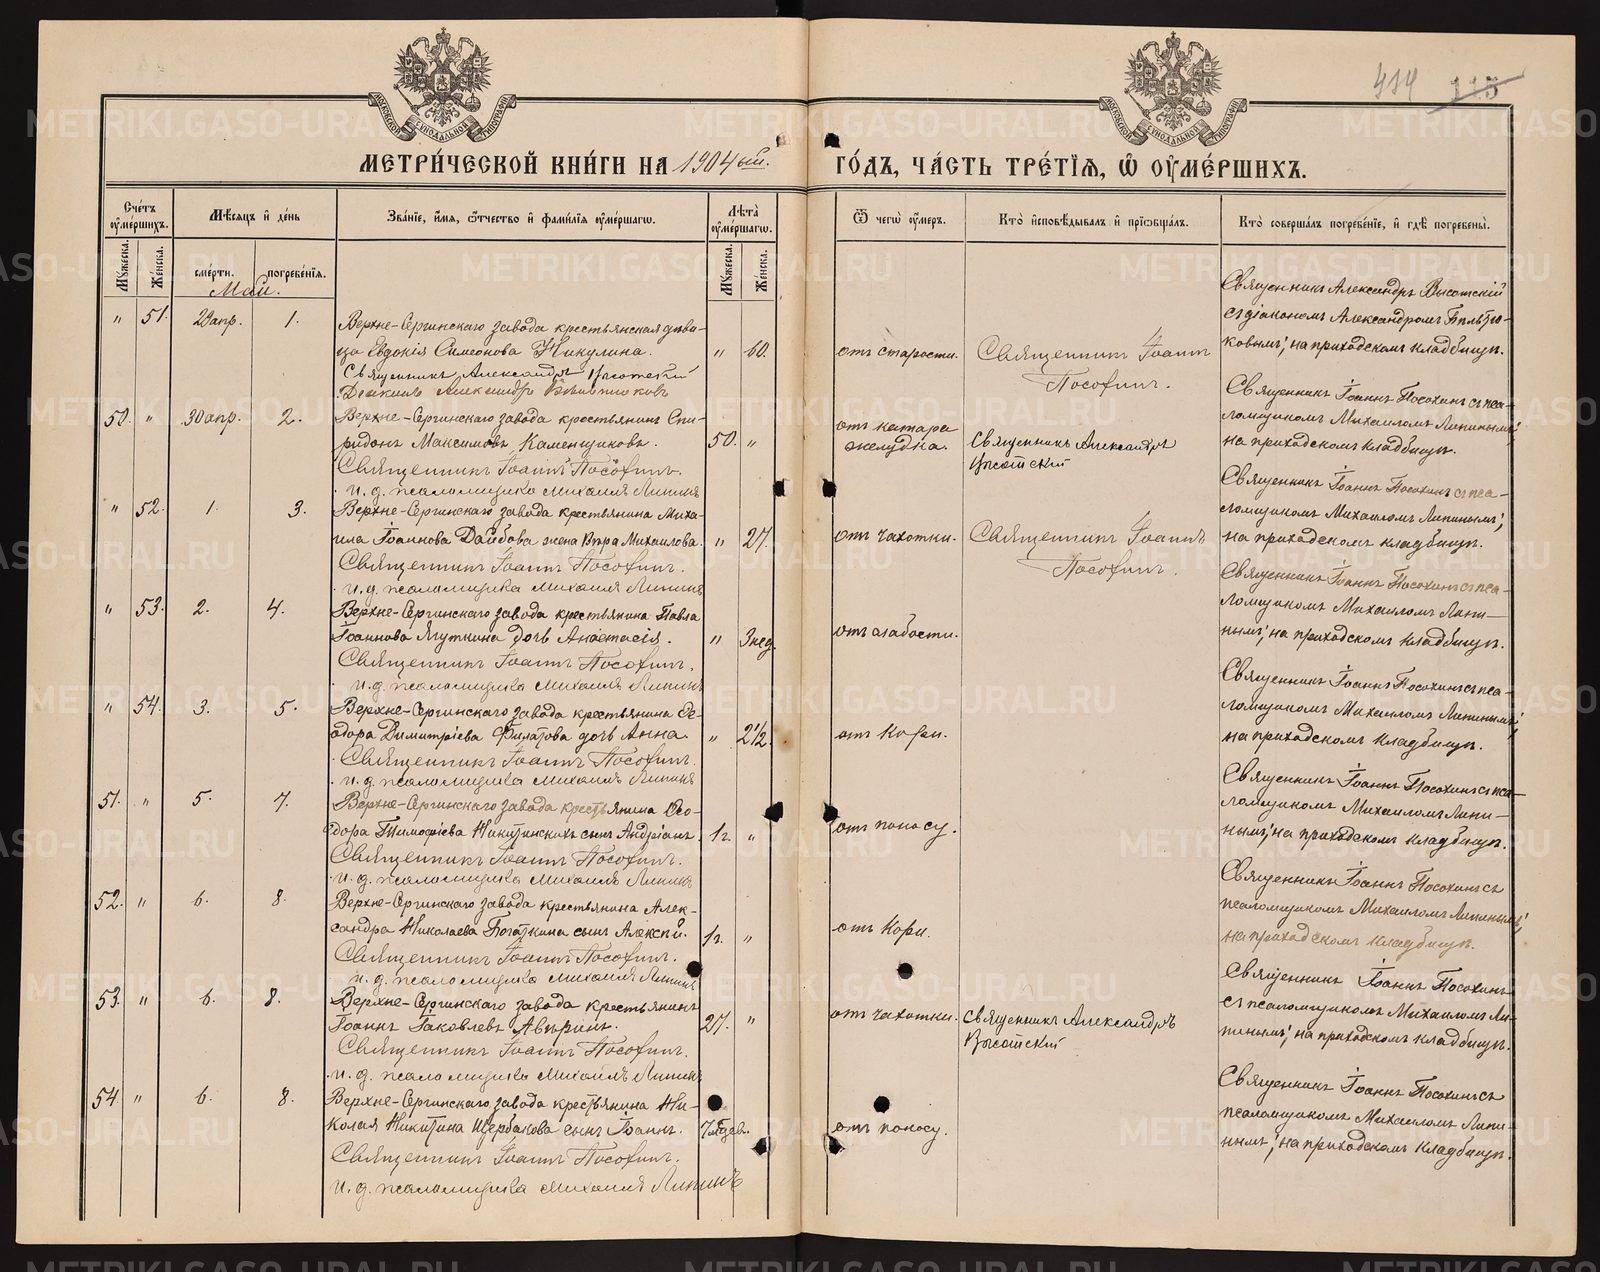 414 115
МОСКОВСКОЙ СѴНОДАЛЬНОЙ ТИПОГРАФІИ
МОСКОВСКОЙ СѴНОДАЛЬНОЙ ТИПОГРАФІИ
МЕТРИ́ЧЕСКОЙ КНИ́ГИ НА 1904ый.
ГО́ДЪ, ЧА́СТЬ ТРЕ́ТІѦ, Ѡ҆ ОУ҆МЕ́РШИХЪ.
Сче́тъ оу҆ме́ршихъ.
Мѣ́сѧцъ и҆ де́нь
Зва́нїе, и҆́мѧ, ѻ҆́тчество и҆ фами́лїѧ оу҆ме́ршагѡ.
Лѣ́та оу҆ме́ршагѡ.
Ѿ чегѡ̀ оу҆́меръ.
Кто̀ и҆сповѣ́дывалъ и҆ прїѡбща́лъ.
Кто̀ соверша́лъ погребе́нїе, и҆ гдѣ̀ погребены̀.
Мꙋ́жеска.
Же́нска.
сме́рти.
погребе́нїѧ.
Мꙋ́жеска.
Же́нска.
Май.
" 51. 29 апр. 1.
Верхне-Сергинскаго завода крестьянская дѣви-
ца Евдокія Симеонова Никулина.
Священникъ Александръ Высотскій
Діаконъ Александръ
" 60.
отъ старости.
Священникъ Іоаннъ
Посохинъ.
Священникъ Александръ Высотскій
съ діакономъ Александромъ
ковымъ, на приходскомъ кладбищѣ.
50. " 30 апр. 2.
Верхне-Сергинскаго завода крестьянинъ Спи-
ридонъ Максимовъ Каменщиковъ.
Священникъ Іоаннъ Посохинъ.
и. д. псаломщика Михаилъ Липинъ
50. "
отъ катара
желудка.
Священникъ Александръ
Высотскій
Священникъ Іоаннъ Посохинъ съ пса-
ломщикомъ Михаиломъ Липинымъ,
на приходскомъ кладбищѣ.
" 52. 1. 3.
Верхне-Сергинскаго завода крестьянина Миха-
ила Іоаннова Даибова жена Вѣра Михаилова.
Священникъ Іоаннъ Посохинъ.
и. д. псаломщика Михаилъ Липинъ
" 27.
отъ чахотки.
Священникъ Іоаннъ
Посохинъ.
Священникъ Іоаннъ Посохинъ съ пса-
ломщикомъ Михаиломъ Липинымъ,
на приходскомъ кладбищѣ.
" 53. 2. 4.
Верхне-Сергинскаго завода крестьянина Павла
Іоаннова Ягуткина дочь Анастасія.
Священникъ Іоаннъ Посохинъ.
и. д. псаломщика Михаилъ Липинъ
" 3 нед.
отъ слабости.
Священникъ Іоаннъ Посохинъ съ пса-
ломщикомъ Михаиломъ Липи-
нымъ, на приходскомъ кладбищѣ.
" 54. 3. 5.
Верхне-Сергинскаго завода крестьянина Ѳе-
одора Димитріева Филатова дочь Анна.
Священникъ Іоаннъ Посохинъ.
и. д. псаломщика Михаилъ Липинъ
" 2 1/2
отъ кори.
Священникъ Іоаннъ Посохинъ съ пса-
ломщикомъ Михаиломъ Липинымъ,
на приходскомъ кладбищѣ.
51. " 5. 7.
Верхне-Сергинскаго завода крестьянина Ѳео-
дора Тимофѣева Никитинскихъ сынъ Андріанъ.
Священникъ Іоаннъ Посохинъ.
и. д. псаломщика Михаилъ Липинъ
1 г. "
отъ поносу.
Священникъ Іоаннъ Посохинъ съ пса-
ломщикомъ Михаиломъ Липи-
нымъ, на приходскомъ кладбищѣ.
52. " 6. 8.
Верхне-Сергинскаго завода крестьянина Алек-
сандра Николаева Богаткина сынъ Алексѣй.
Священникъ Іоаннъ Посохинъ.
и. д. псаломщика Михаилъ Липинъ
1 г. "
отъ кори.
Священникъ Іоаннъ Посохинъ съ
псаломщикомъ Михаиломъ Липинымъ,
на приходскомъ кладбищѣ.
53. " 6. 8.
Верхне-Сергинскаго завода крестьянинъ
Іоаннъ Іаковлевъ Авѣринъ.
Священникъ Іоаннъ Посохинъ.
и. д. псаломщика Михаилъ Липинъ
27. "
отъ чахотки.
Священникъ Александръ
Высотскій
Священникъ Іоаннъ Посохинъ
съ псаломщикомъ Михаиломъ Ли-
пинымъ, на приходскомъ кладбищѣ.
54. " 6. 8.
Верхне-Сергинскаго завода крестьянина Ни-
колая Никитина Щербакова сынъ Іоаннъ.
Священникъ Іоаннъ Посохинъ.
и. д. псаломщика Михаилъ Липинъ
отъ поносу.
Священникъ Іоаннъ Посохинъ съ
псаломщикомъ Михаиломъ Липи-
нымъ, на приходскомъ кладбищѣ.
METRIKI.GASO-URAL.RU